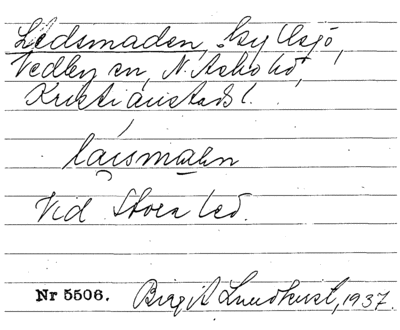 Ledsmaden, by Åsjö,
Vedby sn, N. Åsbo hd,
Kristianstads l.
laismaɑn
Vid Stora led.
Nr 5506. Birgit Lundkvist, 1937.